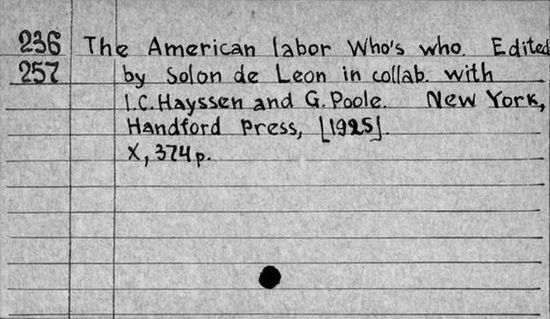 236 The American labor Who's who. Edited
257 by Solon de Leon in collab. with
I.C. Hayssen and G. Poole. New York,
Handford Press, [1925].
X, 374 p.